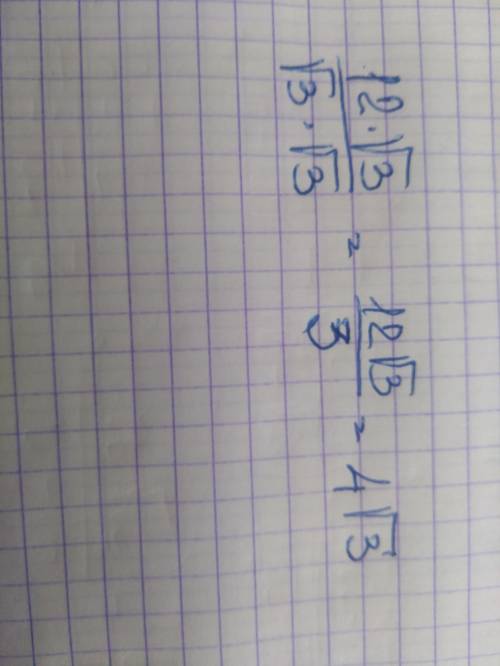 \frac{12 \cdot \sqrt{3}}{\sqrt{3} \cdot \sqrt{3}} = \frac{12\sqrt{3}}{3} = 4\sqrt{3}